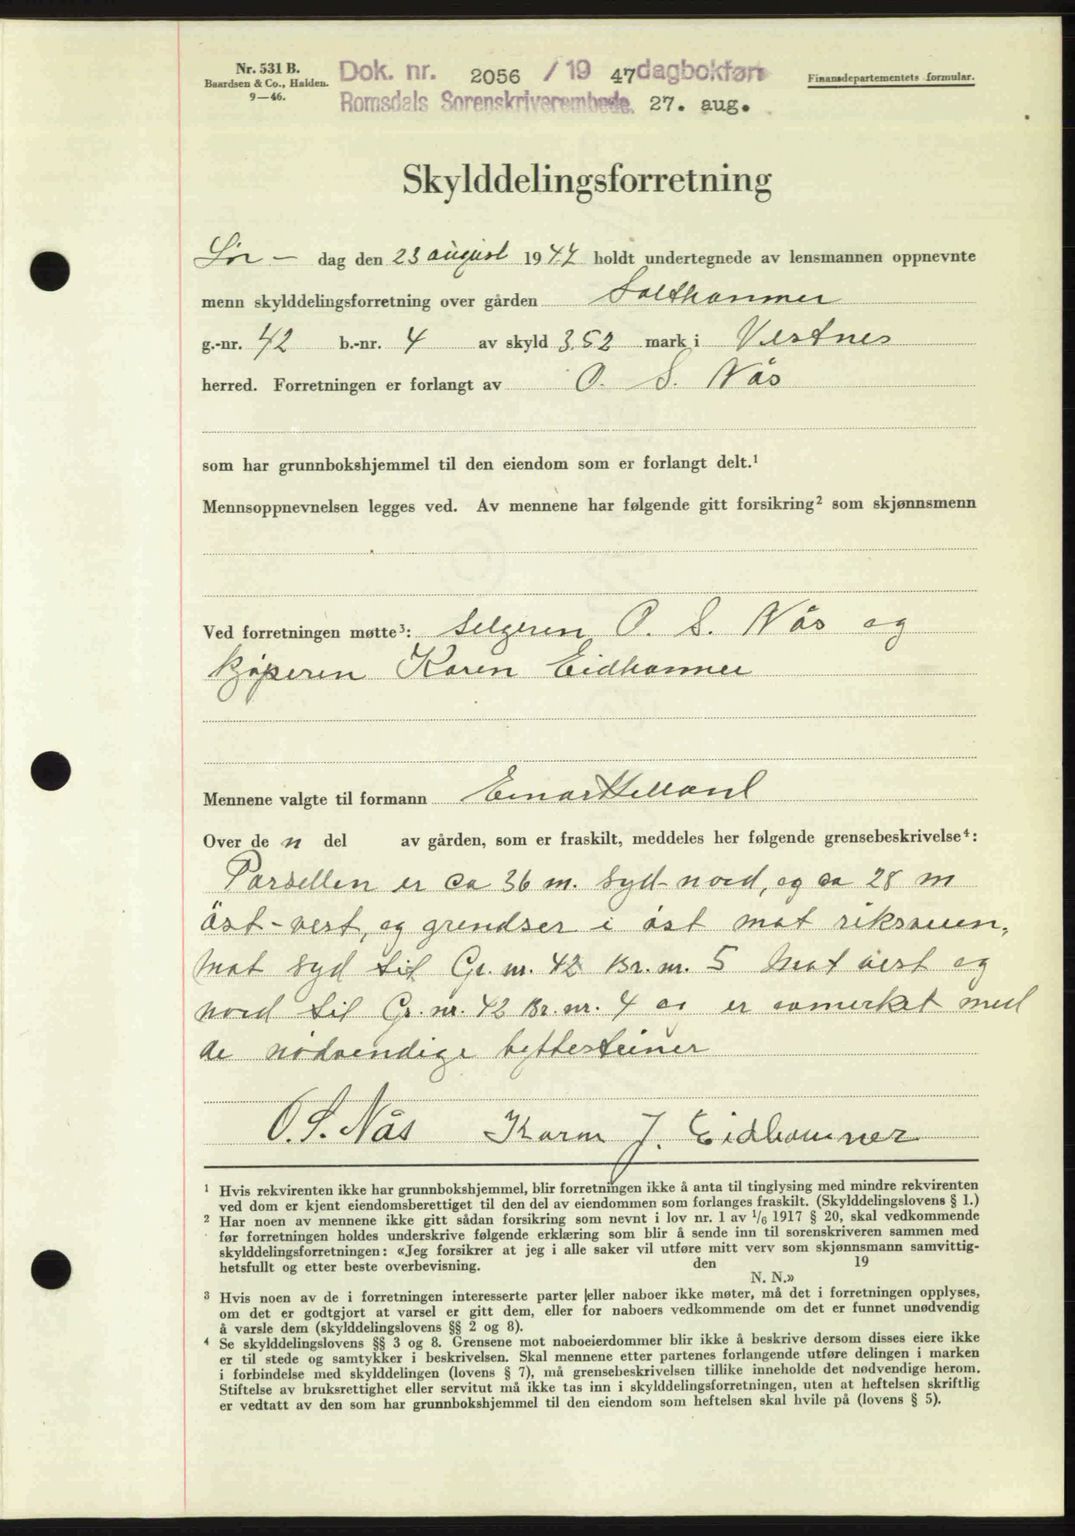 Nr. 531 B.
Baardsen & Co., Halden.
9—46.
Dok. nr. 2056 / 19 47 dagbokført
Romsdals Sorenskriverembede. 27. aug.
Finansdepartementets formular.
Skylddelingsforretning
Lør - dag den 23 august 1947 holdt undertegnede av lensmannen oppnevnte
menn skylddelingsforretning over gården Salthammer
g.-nr. 42 b.-nr. 4 av skyld 3.52 mark i Vestnes
herred. Forretningen er forlangt av O. S. Nås
som har grunnbokshjemmel til den eiendom som er forlangt delt.¹
Mennsoppnevnelsen legges ved. Av mennene har følgende gitt forsikring² som skjønnsmenn
Ved forretningen møtte³: selgeren O. S. Nås og
kjøperen Karen Eidhammer
Mennene valgte til formann Einar Helland
Over de n del av gården, som er fraskilt, meddeles her følgende grensebeskrivelse⁴:
Parsellen er ca 36 m. syd-nord, og ca 28 m
öst-vest, og grendser i øst mot riksveien,
mot syd til Gr. nr. 42 Br. nr. 5 Mot vest og
nord til Gr. nr. 42 Br. nr. 4 og er avmerket med
de nødvendige byttesteiner
O. S. Nås Karen J. Eidhammer
¹ Hvis rekvirenten ikke har grunnbokshjemmel, blir forretningen ikke å anta til tinglysing med mindre rekvirenten
ved dom er kjent eiendomsberettiget til den del av eiendommen som forlanges fraskilt. (Skylddelingslovens § 1.)
² Har noen av mennene ikke gitt sådan forsikring som nevnt i lov nr. 1 av ¹/₆ 1917 § 20, skal vedkommende
før forretningen holdes underskrive følgende erklæring som blir å sende inn til sorenskriveren sammen med
skylddelingsforretningen: «Jeg forsikrer at jeg i alle saker vil utføre mitt verv som skjønnsmann samvittig-
hetsfullt og etter beste overbevisning. den 19
N. N.»
³ Hvis noen av de i forretningen interesserte parter eller naboer ikke møter, må det i forretningen opplyses,
om det er godtgjort at varsel er gitt dem, eller for naboers vedkommende om det er funnet unødvendig
å varsle dem (skylddelingslovens §§ 2 og 8).
⁴ Se skylddelingslovens §§ 3 og 8. Grensene mot naboeierdommer blir ikke å beskrive dersom disses eiere ikke
er til stede og samtykker i beskrivelsen. Skal mennene etter partenes forlangende utføre delingen i marken
i forbindelse med skylddelingen (lovens § 7), må grensebeskrivelsen tillike inneholde det nødvendige herom.
Stiftelse av bruksrettighet eller servitut må ikke tas inn i skylddelingsforretningen, uten at heftelsen skriftlig
er vedtatt av den som har grunnbokshjemmel til den eiendom som heftelsen skal hvile på (lovens § 5).